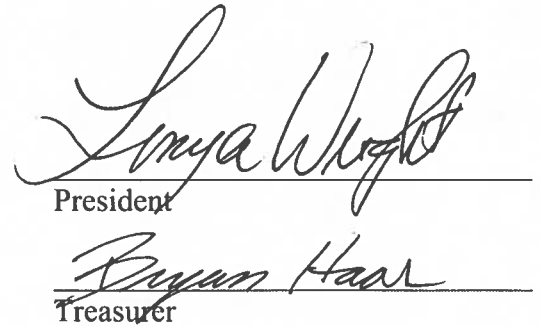 Tonya Wright
President
Bryan Haar
Treasurer